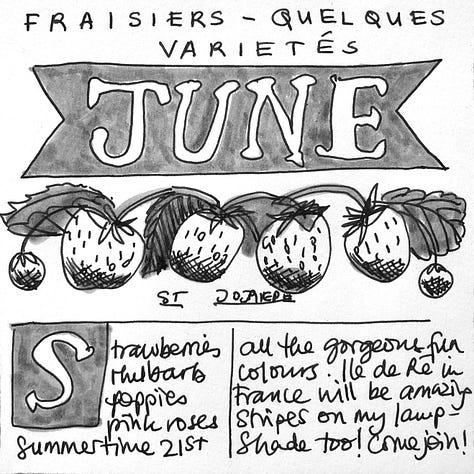 FRAISIERS - QUELQUES
VARIETÉS
JUNE
ST
Strawberries
rhubarb
poppies
pink roses
Summertime 21ST
all the gorgeous fun
colours. Ile de Ré in
France will be amazing
Stripes on my lamp-
Shade too! Come join!